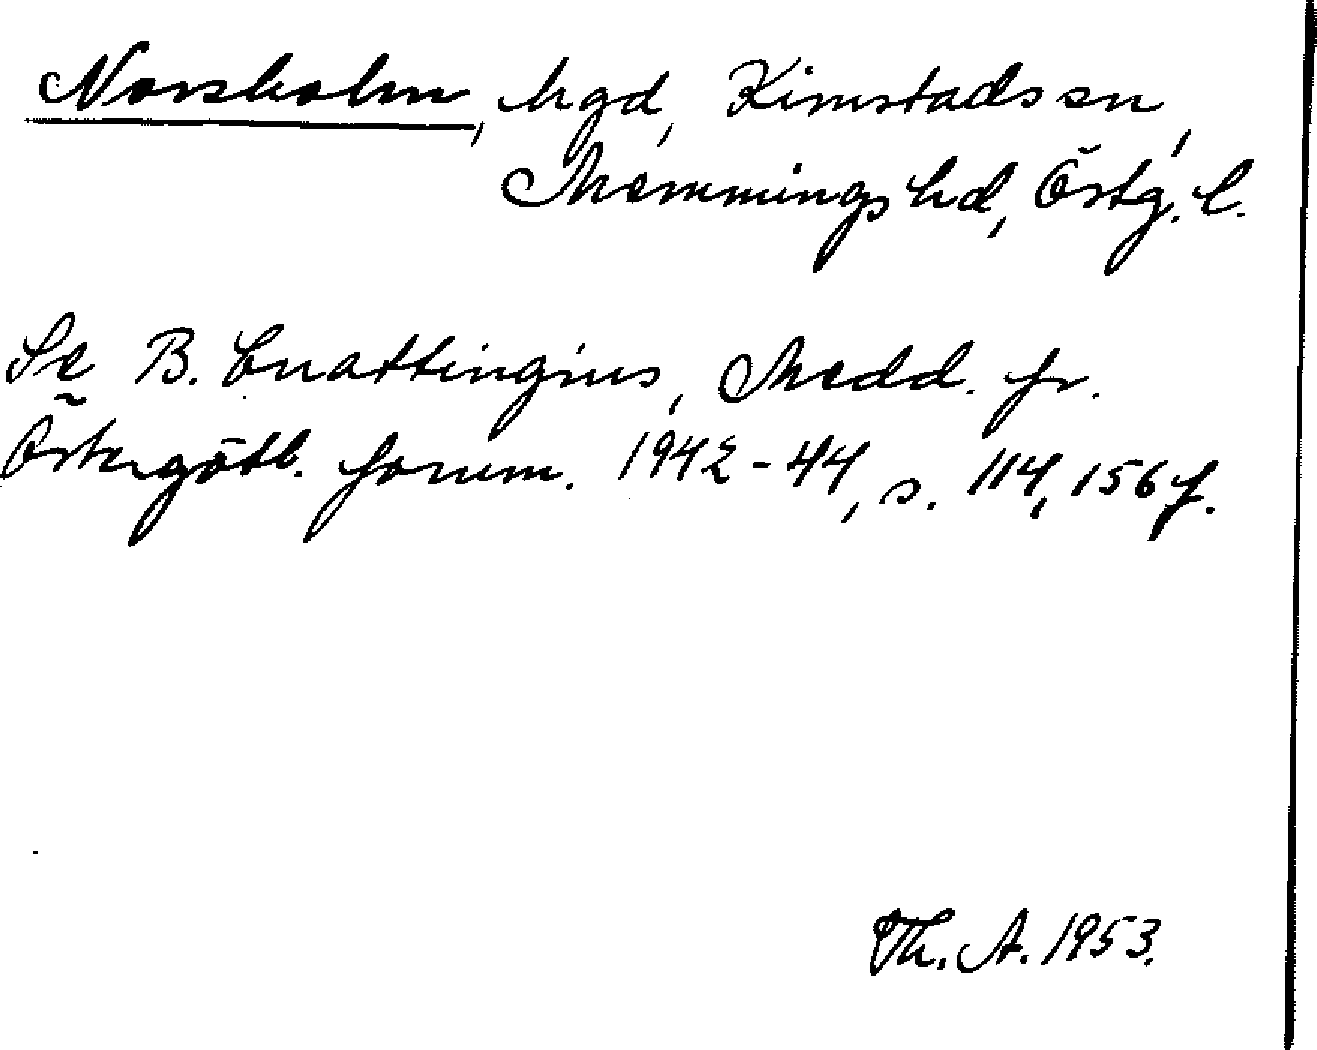 Norsholm, hgd, Kimstads sn,
Memmings hd, Östg. l.
Se B. Cnattingius, Medd. fr.
Östergötl. fornm. 1942-44, s. 114, 156 f.
Th. A. 1953.